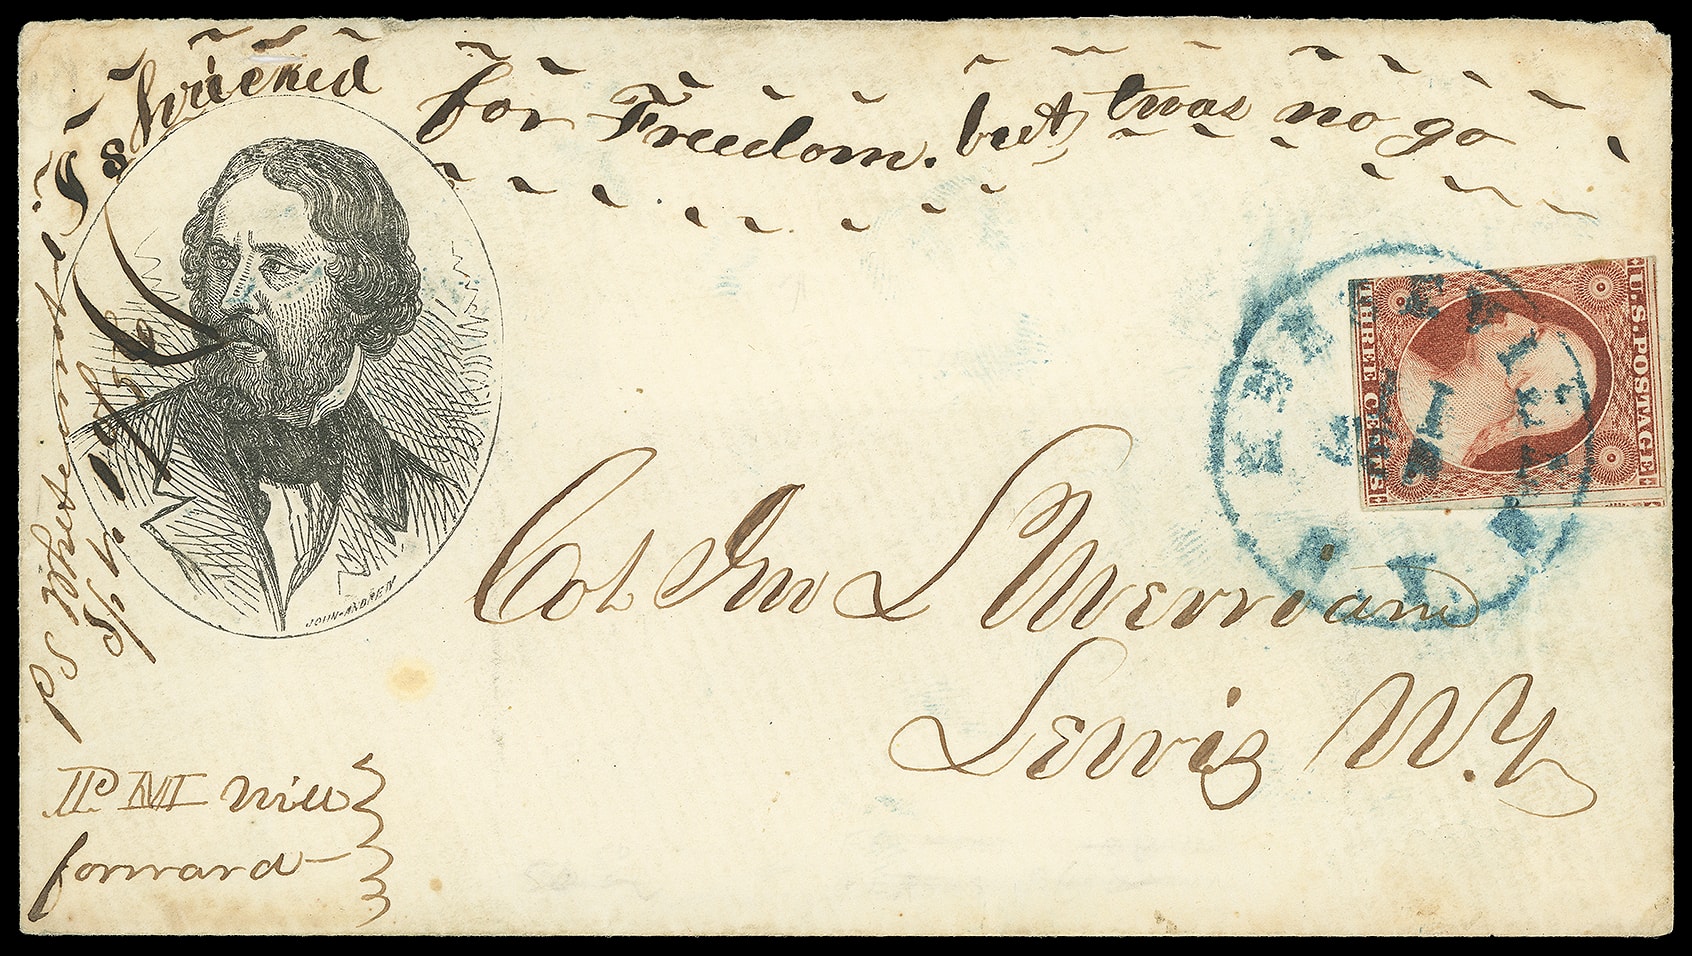 I shrieked for Freedom. but twas no go
Col Jno L Merriam
Lewis N.Y
PM will
forward
PS
JOHN-ANDREW
U.S. POSTAGE
THREE CENTS
KEESEVILLE
N.Y.